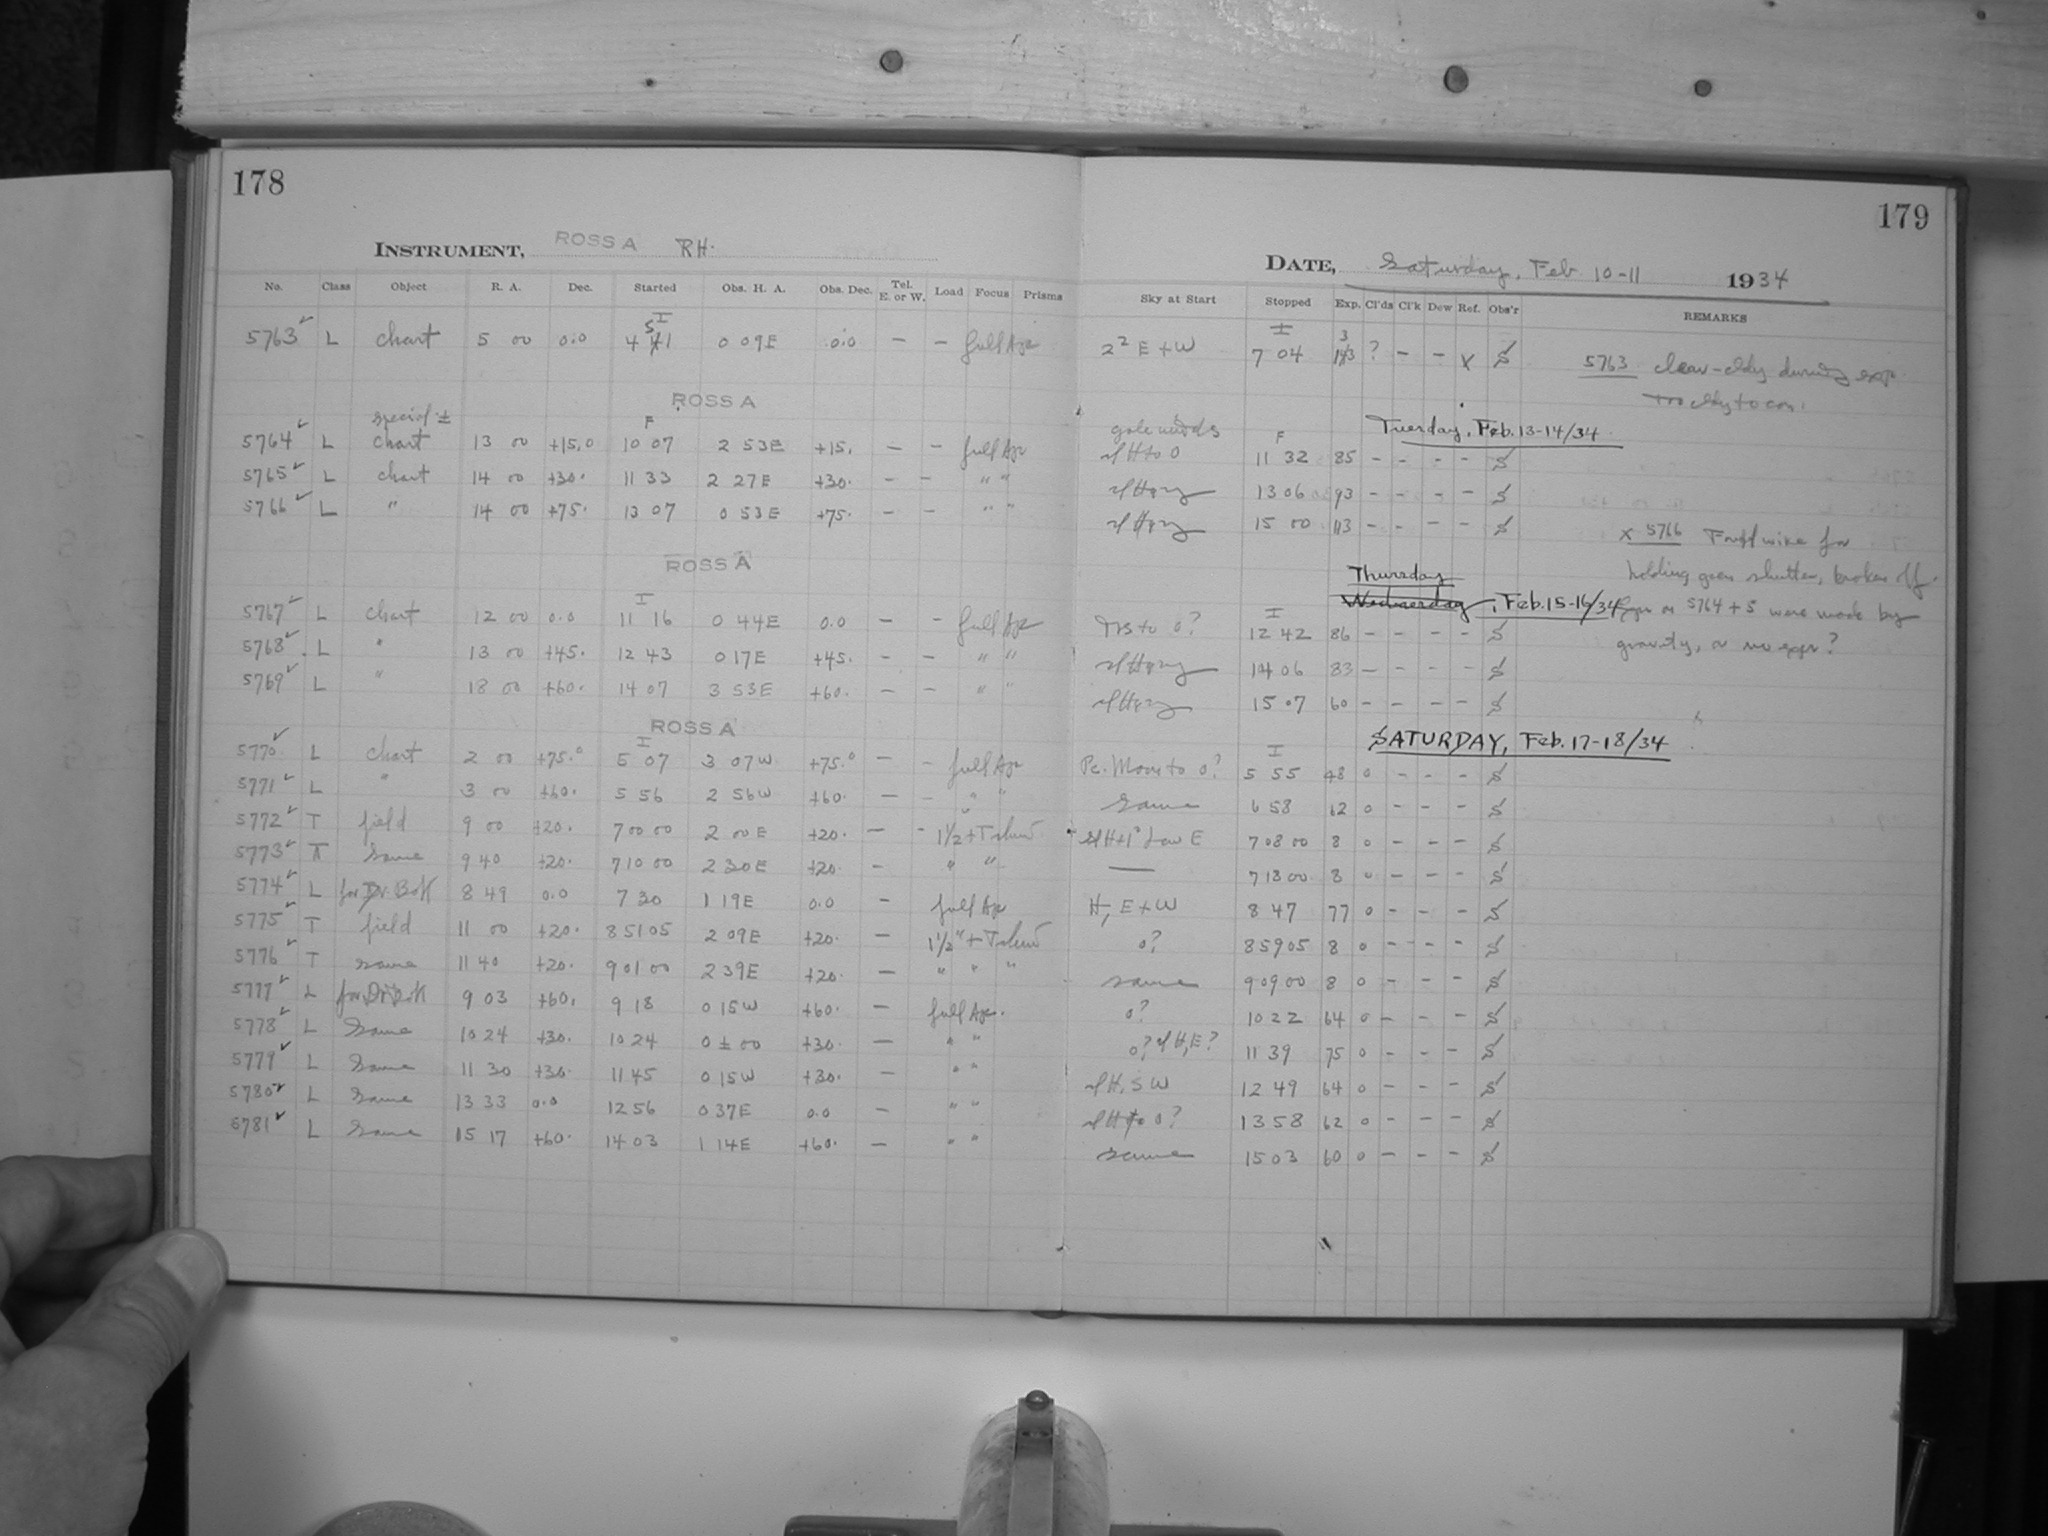 178
INSTRUMENT, ROSS A RH.
No. Class Object R. A. Dec. Started Obs. H. A. Obs. Dec. Tel. E. or W. Load Focus Prisms
5763 ✓ L chart 5 00 0.0 4 51 0 09E 0.0 — — full Apr
ROSS A
special ±
5764 ✓ L chart 13 00 +15.0 F 10 07 2 53E +15. — — full Apr
5765 ✓ L chart 14 00 +30. 11 33 2 27E +30. — — " "
5766 ✓ L " 14 00 +75. 13 07 0 53E +75. — — " "
ROSS A
5767 ✓ L chart 12 00 0.0 I 11 16 0 44E 0.0 — — full Apr
5768 ✓ L " 13 00 +45. 12 43 0 17E +45. — — " "
5769 ✓ L " 18 00 +60. 14 07 3 53E +60. — — " "
ROSS A
5770 ✓ L chart 2 00 +75.0 I 5 07 3 07W +75.0 — — full Apr
5771 ✓ L " 3 00 +60. 5 56 2 56W +60. — — " "
5772 ✓ T field 9 00 +20. 7 00 00 2 00E +20. — - 1½+T
5773 ✓ T same 9 40 +20. 7 10 00 2 30E +20. — " "
5774 ✓ L for Dr. Bok 8 49 0.0 7 30 1 19E 0.0 — full Apr
5775 ✓ T field 11 00 +20. 8 51 05 2 09E +20. — 1½"+T
5776 ✓ T same 11 40 +20. 9 01 00 2 39E +20. — " " "
5777 ✓ L for Dr Bok 9 03 +60. 9 18 0 15W +60. — full Apr.
5778 ✓ L same 10 24 +30. 10 24 0 ± 00 +30. — " "
5779 ✓ L same 11 30 +30. 11 45 0 15W +30. — " "
5780 ✓ L same 13 33 0.0 12 56 0 37E 0.0 — " "
5781 ✓ L same 15 17 +60. 14 03 1 14E +60. — " "
179
DATE, Saturday, Feb 10-11 1934
Sky at Start Stopped Exp. Cl'ds Cl'k Dew Ref. Obs'r REMARKS
2² E + W I 7 04 ? — — X S 5763 clear-cldy during exp.
Too cldy to con.
gale winds Tuesday, Feb. 13-14/34
sl H to 0 F 11 32 85 — — — — S
sl Hazy 13 06 93 — — — — S
sl Hazy 15 00 113 — — — — S
x 5766 Found wire for
holding open shutter, broken off.
Thursday
Wednesday, Feb. 15-16/34 Expr on 5764 + 5 were made by
gravity, or no expr?
to 0? I 12 42 86 — — — — S
sl Hazy 14 06 83 — — — — S
sl Hazy 15 07 60 — — — — S
SATURDAY, Feb. 17-18/34
Pc. Moon to 0? I 5 55 48 0 — — — S
same 6 58 62 0 — — — S
sl H+1° Low E 7 08 00 8 0 — — — S
— 7 18 00 8 0 — — — S
H, E + W 8 47 77 0 — — — S
0? 8 59 05 8 0 — — — S
same 9 09 00 8 0 — — — S
0? 10 22 64 0 — — — S
0? sl H, E? 11 39 75 0 — — — S
sl H, S W 12 49 64 0 — — — S
sl H to 0? 13 58 62 0 — — — S
same 15 03 60 0 — — — S